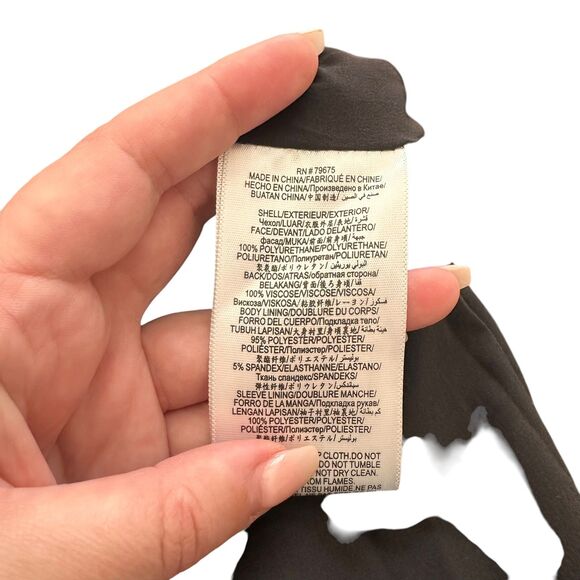 RN#79675
MADE IN CHINA/FABRIQUÉ EN CHINE/
HECHO EN CHINA/Произведено в Китае/
BUATAN CHINA/中国制造/ صنع في الصين/
SHELL/EXTERIEUR/EXTERIOR/
Чехол/LUAR/衣服外层/表地/ قشرة/
FACE/DEVANT/LADO DELANTERO/
фасад/MUKA/前面/前身頃/ جبهة/
100% POLYURETHANE/POLYURÉTHANE/
POLIURETANO/Полиуретан/PILIURETAN/
聚氨酯/ポリウレタン/ البولي يوريثين/
BACK/DOS/ATRAS/обратная сторона/
BELAKANG/背面/後ろ身頃/ قفا/
100% VISCOSE/VISCOSE/VISCOSA/
Вискоза/VISKOSA/粘胶纤维/レーヨン/ فسكوز/
BODY LINING/DOUBLURE DU CORPS/
FORRO DEL CUERPO/Подкладка тело/
TUBUH LAPISAN/大身衬里/身頃裏地/ هيئة بطانة/
95% POLYESTER/POLYESTER/
POLIÉSTER/Полиэстер/POLIESTER/
聚酯纤维/ポリエステル/ بوليستر/
5% SPANDEX/ELASTHANNE/ELASTANO/
Ткань спандекс/SPANDEKS/
弹性纤维/ポリウレタン/ سباندكس/
SLEEVE LINING/DOUBLURE MANCHE/
FORRO DE LA MANGA/Подкладка рукав/
LENGAN LAPISAN/袖子衬里/袖裏地/ كم بطانة/
100% POLYESTER/POLYESTER/
POLIÉSTER/Полиэстер/POLIESTER/
聚酯纤维/ポリエステル/ بوليستر/
CLOTH.DO NOT
DO NOT TUMBLE
NOT DRY CLEAN.
FROM FLAMES.
TISSU HUMIDE.NE PAS